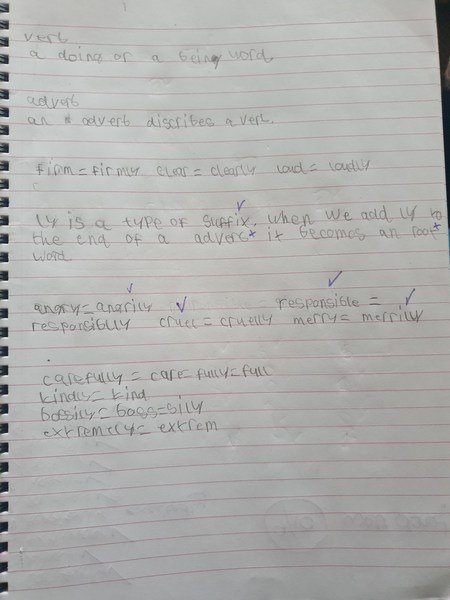 verb
a doing or a being word
adverb
an adverb discribes a verb.
firm = firmly clear = clearly loud = loudly
ly is a type of suffix. when we add ly to
the end of a adverb it becomes an root
word.
angry = angrily responsible =
responsiblly cruel = cruelly merry = merrily
carefully = care = fully = full
kindly = kind
bossily = boss = sily
extremely = extrem